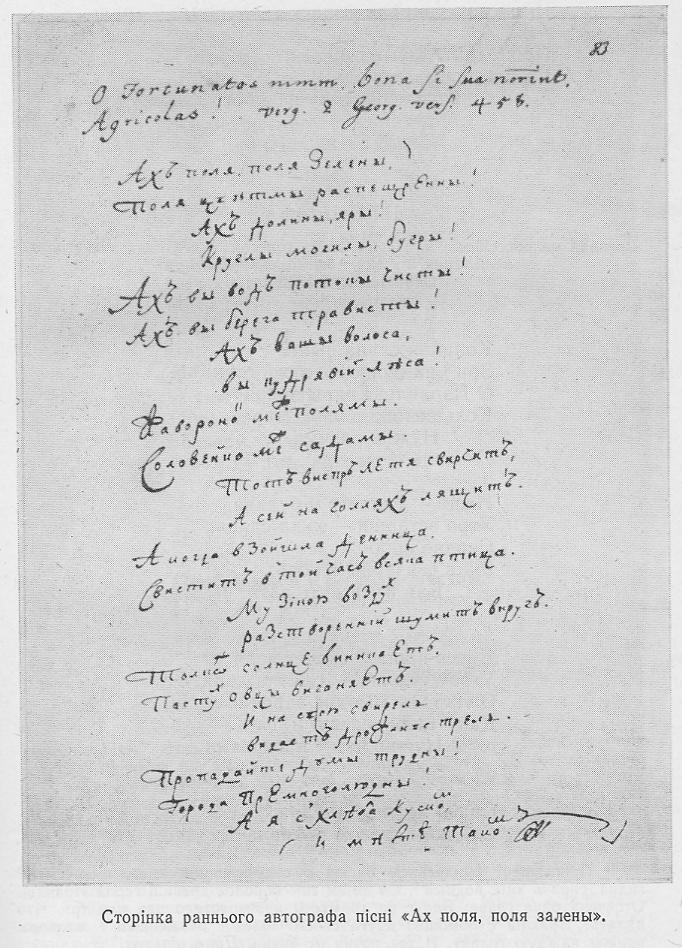 83
O Fortunatos nimm. bona si sua norint,
Agricolas! Virg. 2 Georg. vers. 458.
Ахъ поля, поля зелены,
Поля цвѣтмы распещренны!
Ахъ долины, яры!
Круглы могилы, бугры!
Ахъ вы водъ потоки чисты!
Ахъ вы берега трависты!
Ахъ вашы волоса,
вы кудрявій лѣса!
Жавороно меж полямы.
Соловейко меж садамы.
Тотъ виспрь летя свирчитъ,
А сей на голляхъ лящитъ.
А когда взойшла денница.
Свиститъ в той часъ всяка птица.
Музікою воздух
разстворенній шумитъ вкругъ.
Толко солнце виникнетъ.
Пастух овци виганяетъ.
И на свою свирель
видаетъ дрожливъ трель.
Пропадайте думы трудны!
Города премноголюдны!
А я с хлѣба куском
мѣстѣ таком
Сторінка раннього автографа пісні «Ах поля, поля залены».